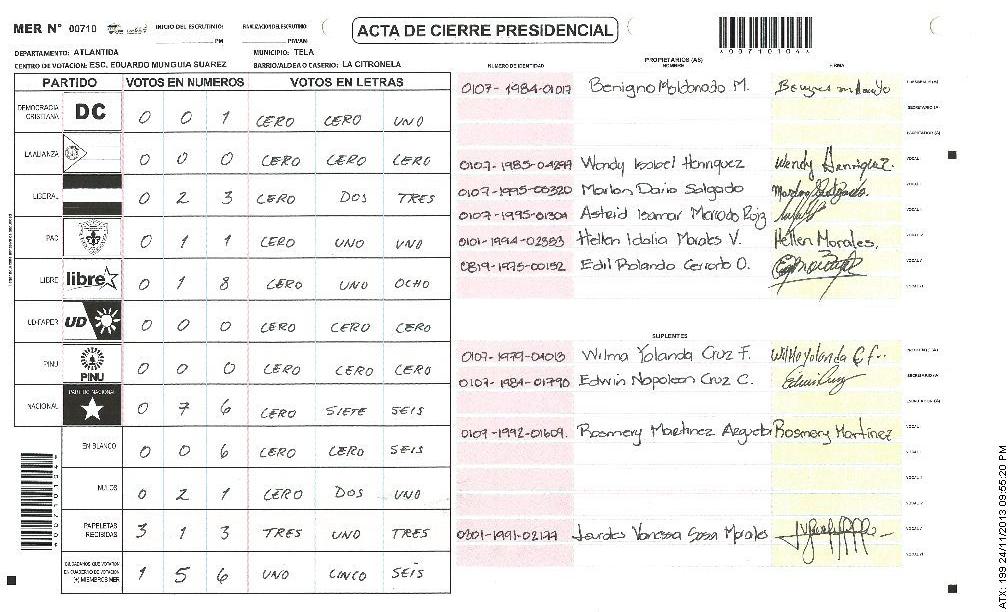 MER N° 00710 INICIO DEL ESCRUTINIO: PM FINALIZACION DEL ESCRUTINIO: PM/AM
ACTA DE CIERRE PRESIDENCIAL
A00710104A
DEPARTAMENTO: ATLANTIDA MUNICIPIO: TELA
CENTRO DE VOTACION: ESC. EDUARDO MUNGUIA SUAREZ BARRIO/ALDEA O CASERIO: LA CITRONELA
PARTIDO VOTOS EN NUMEROS VOTOS EN LETRAS
DEMOCRACIA CRISTIANA DC 0 0 1 CERO CERO UNO
LA ALIANZA 0 0 0 CERO CERO CERO
LIBERAL 0 2 3 CERO DOS TRES
PAC 0 1 1 CERO UNO UNO
LIBRE libre 0 1 8 CERO UNO OCHO
UD-FAPER UD 0 0 0 CERO CERO CERO
PINU PINU 0 0 0 CERO CERO CERO
NACIONAL PARTIDO NACIONAL 0 7 6 CERO SIETE SEIS
EN BLANCO 0 0 6 CERO CERO SEIS
NULOS 0 2 1 CERO DOS UNO
PAPELETAS RECIBIDAS 3 1 3 TRES UNO TRES
CIUDADANOS QUE VOTARON EN CUADERNO DE VOTACION (+) MIEMBROS MER 1 5 6 UNO CINCO SEIS
PROPIETARIOS (AS)
NUMERO DE IDENTIDAD NOMBRE FIRMA
0107-1984-01017 Benigno Maldonado M.
0107-1985-04297 Wendy Isabel Henriquez Wendy Henriquez.
0107-1995-00320 Marlon Dario Salgado
0107-1995-01304 Astrid Isamar Mercado Ruiz
0101-1994-02353 Hellen Idalia Morales V. Hellen Morales.
0819-1975-00152 Edil Rolando Cerrato O.
SUPLENTES
0107-1979-01013 Wilma Yolanda Cruz F.
0107-1984-01790 Edwin Napoleon Cruz C. Edwin Cruz
0107-1992-01609. Rosmery Martinez Argueta Rosmery Martinez
0201-1991-02177 Lourdes Vanessa Sosa Morales
ATX: 199 24/11/2013 09:55:20 PM